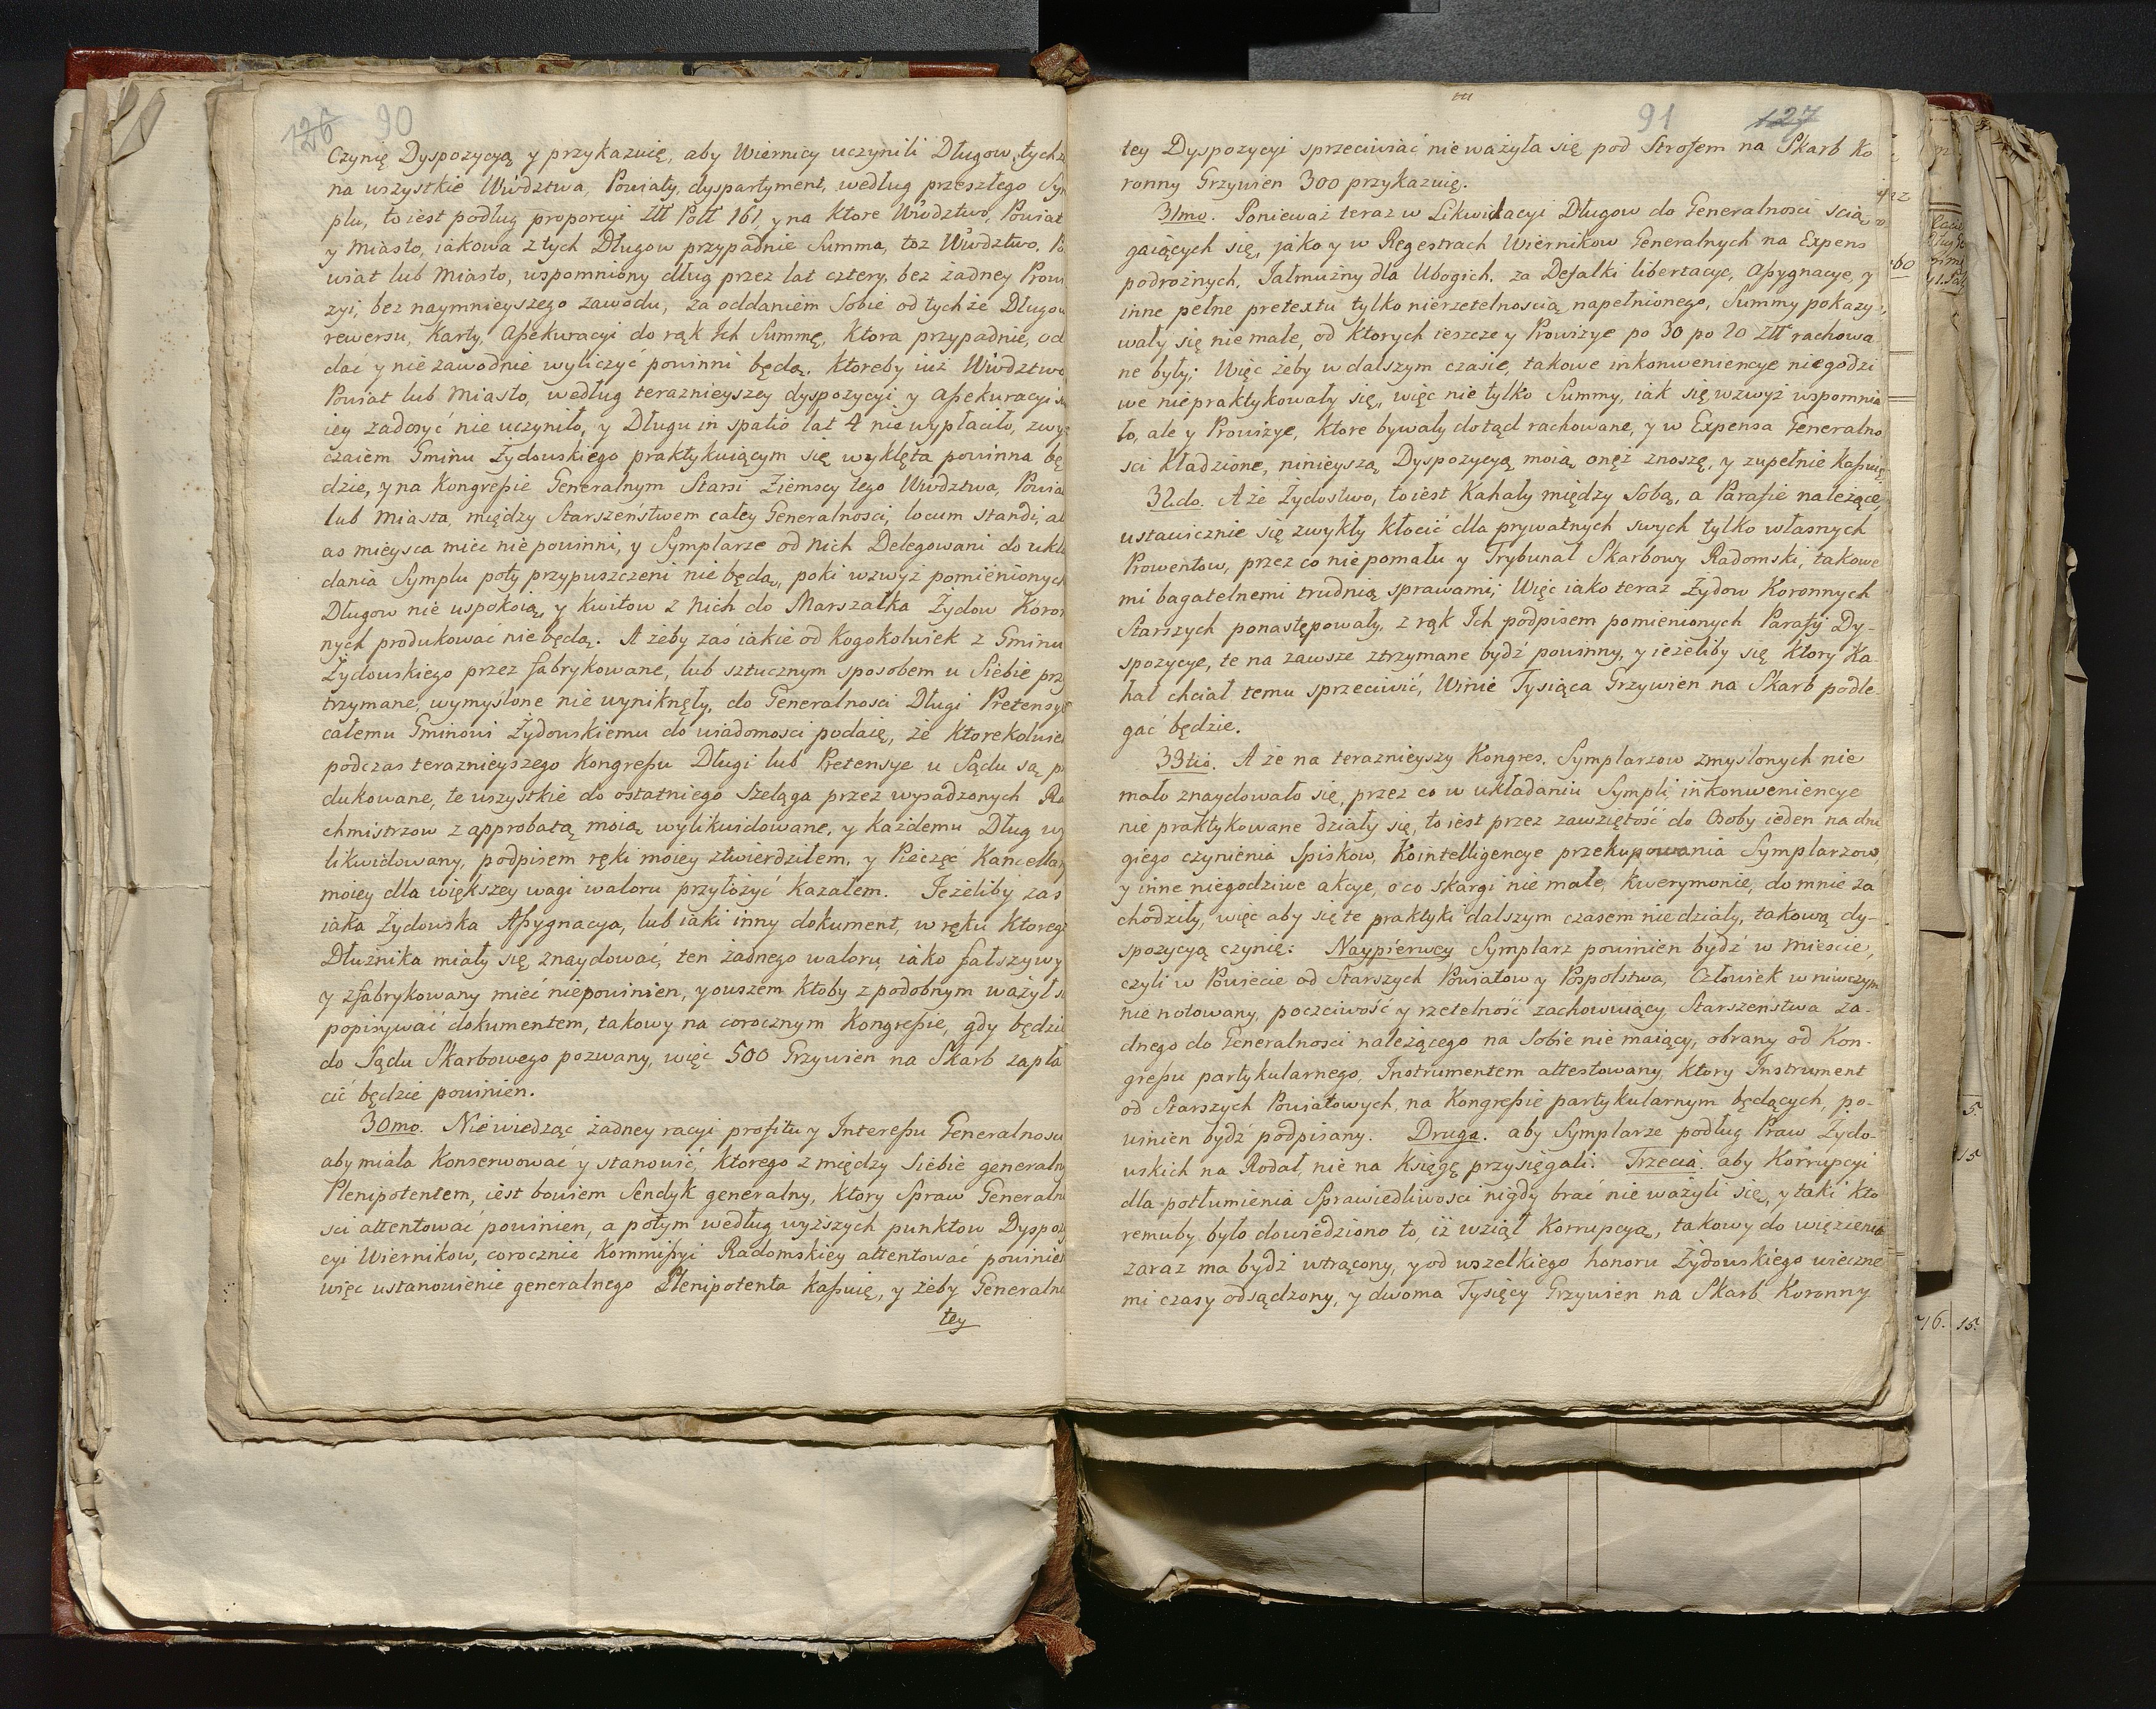 126 90
Czynię Dyspozycyą y przykazuię, aby Wiernicy uczynili Długow, tychż
na wszystkie Wwdztwa, Powiaty, dyspartyment, według przeszłego Sy
plu, to iest podług proporcyi Złł Poll 161 y na ktore Wwdztwo, Powiat
y Miasto, iakowa z tych Długow przypadnie Summa, toz Wwdztwo, Po
wiat lub Miasto, wspomniony dług przez lat cztery, bez żadney Prowi
zyi, bez naymnieyszego zawodu, za oddaniem Sobie od tychże Długow
rewersu, Karty, Assekuracyi do rąk Ich Summę, Ktora przypadnie, od
dać y nie zawodnie wyliczyć powinni będą. Ktoreby iuż Wwdztwo
Powiat lub Miasto, według teraznieyszey dyspozycyi y Assekuracyi s
iey zadosyć nie uczyniło, y Długu in spatio lat 4 nie wypłaciło, zwy
czaiem Gminu Żydowskiego praktykuiącym się wyklęta powinna bę
dzie, y na Kongressie Generalnym Starsi Ziemscy tego Wwdztwa, Powia
lub Miasta, między Starszeństwem całey Generalnosci, locum standi, al
ao mieysca mieć nie powinni, y Symplarze od Nich Delegowani do ukła
dania Symplu poty przypuszczeni nie będą, poki wzwyż pomienionych
Długow nie uspokoią, y Kwitow z Nich do Marszałka Żydow Koron
nych produkować nie będą. A żeby zaś iakie od kogokolwiek z Gminu
Żydowskiego przez fabrykowane, lub sztucznym sposobem u Siebie prz
trzymane, wymyslone nie wyniknęły, do Generalnosci Długi Pretensye
całemu Gminowi Żydowskiemu do wiadomosci podaię, że Ktorekolwie
podczas teraznieyszego Kongressu Długi lub Pretensye u Sądu są p
dukowane, te wszystkie do ostatniego Szeląga przez wysadzonych Ra
chmistrzow z approbatą moią wylikwidowane, y każdemu Dług wy
likwidowany, podpisem ręki moiey ztwierdziłem, y Pieczęć Kancellary
moiey dla większey wagi waloru przyłożyć kazałem. Jeżeliby zaś
iaka Żydowska Assygnacya, lub iaki inny dokument, w ręku Ktoreg
Dłużnika miały się znaydować, ten żadnego waloru, iako fałszywy
y zfabrykowany mieć nie powinien, y owszem ktoby z podobnym ważył s
popisywać dokumentem, takowy na corocznym Kongressie, gdy będzie
do Sądu Skarbowego pozwany, więc 500 Grzywien na Skarb zapła
cić będzie powinien.
30mo. Nie wiedząc żadney racyi profitu y Interessu Generalnosci
aby miała Konserwować y stanowić, Ktorego z między Siebie generalny
Plenipotentem, iest bowiem Sendyk generalny, Ktory Spraw Generalno
sci attentować powinien, a potym według wyższych punktow Dyspozy
cyi Wiernikow, corocznie Kommissyi Radomskiey attentować powinien
więc ustanowienie generalnego Plenipotenta kassuię, y żeby Generalno
tey
91 127
tey Dyspozycyi sprzeciwiać nie ważyła się pod Strofem na Skarb Ko
ronny Grzywien 300 przykazuię.
31mo. Ponieważ teraz w Likwidacyi Długow do Generalnosci scią
gaiących się, jako y w Regestrach Wiernikow Generalnych na Expens
podrożnych, Jałmużny dla Ubogich, za Defalki libertacye, Assygnacye, y
inne pełne pretextu tylko nierzetelnoscią napełnionego, Summy pokazy
wały się nie małe, od ktorych ieszcze y Prowizye po 30 po 20 Złł rachowa
ne były; Więc żeby w dalszym czasie, takowe inkonweniencye niegodzi
we niepraktykowały się, więc nie tylko Summy, iak się wzwyż wspomnia
ło, ale y Prowizye, ktore bywały dotąd rachowane, y w Expensa Generalno
sci kładzione, ninieyszą Dyspozycyą moią onęż znoszę, y zupełnie kassuię.
32do. A że Żydostwo, to iest Kahały między Sobą, a Parafie należące,
ustawicznie się zwykły kłocić dla prywatnych swych tylko własnych
Prowentow, przez co nie pomału y Trybunał Skarbowy Radomski, takowe
mi bagatelnemi trudnią sprawami; Więc iako teraz Żydow Koronnych
Starszych ponastępowały, z rąk Ich podpisem pomienionych Parafij Dy-
spozycye, te na zawsze ztrzymane bydź powinny, y ieżeliby się ktory Ka-
hał chciał temu sprzeciwić, Winie Tysiąca Grzywien na Skarb podle
gać będzie.
33tio. A że na teraznieyszy Kongres, Symplarzow zmyslonych nie
mało znaydowało się, przez co w układaniu Sympli inkonweniencye
nie praktykowane działy się, to iest przez zawziętość do Osoby ieden na dru
giego czynienia Spiskow, Kointelligencye przekupowania Symplarzow,
y inne niegodziwe akcye, o co skargi nie małe, Kwerymonie, do mnie za
chodziły, więc aby się te praktyki dalszym czasem niedziały, takową dy-
spozycyą czynię: Naypierwey Symplarz powinien bydź w Miescie,
czyli w Powiecie od Starszych Powiatow y Pospolstwa, Człowiek w niwczym
nie notowany, poczciwość y rzetelność zachowuiący, Starszeństwa ża-
dnego do Generalnosci należącego na Sobie nie maiący, obrany od Kon-
gressu partykularnego, Instrumentem attestowany, ktory Instrument
od Starszych Powiatowych, na Kongressie partykularnym będących, po-
winien bydź podpisany. Druga. aby Symplarze podług Praw Żydo-
wskich na Rodał, nie na Księgę przysięgali. Trzecia. aby Korrupcyi
dla potłumienia Sprawiedliwosci nigdy brać nie ważyli się, y taki kto
remuby było dowiedziono to, iż wziął Korrupcyą, takowy do więzienia
zaraz ma bydź wtrącony, y od wszelkiego honoru Żydowskiego wieczne
mi czasy odsądzony, y dwoma Tysięcy Grzywien na Skarb Koronny
60
5
15
716. 15.